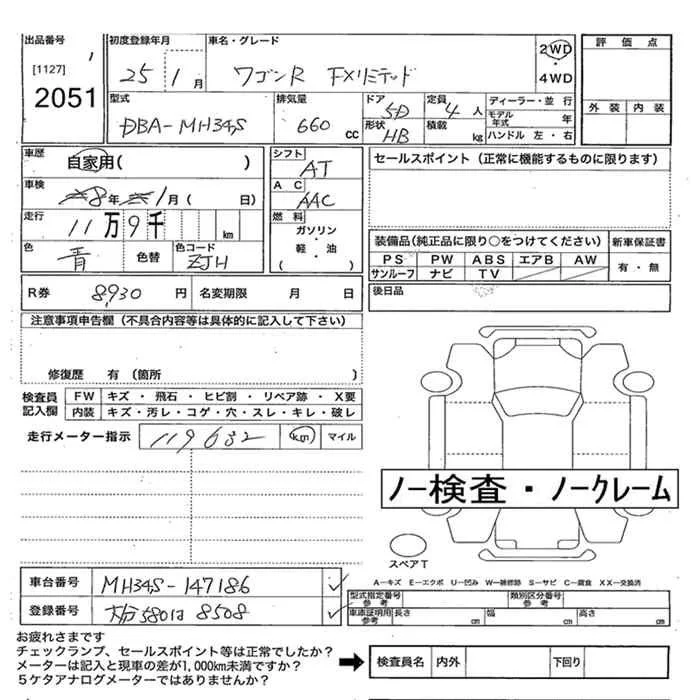 出品番号 初度登録年月 車名・グレード 評価点
[1127] 25 1月 ワゴンR FXリミテッド 2WD・4WD
2051
型式 排気量 ドア 定員 ディーラー・並 行 外装 内装
DBA-MH34S 660cc 5D 4人 モデル年式 年
形状 HB 積載 kg ハンドル 左・右
車歴 自家用( ) シフト AT セールスポイント(正常に機能するものに限ります)
車検 8年 1月( 日) AC AAC
走行 11万9千 km 燃料 ガソリン・軽・油 ( )
装備品(純正品に限り○をつけてください) 新車保証書
色 青 色替 色コード ZJH PS PW ABS エアB AW 有・無
サンルーフ ナビ TV
R券 8,930円 名変期限 月 日 後日品
注意事項申告欄(不具合内容等は具体的に記入して下さい)
修復歴 有(箇所 )
検査員記入欄 FW キズ・飛石・ヒビ割・リペア跡・X要
内装 キズ・汚レ・コゲ・穴・スレ・キレ・破レ
走行メーター指示 119632 km マイル
ノー検査・ノークレーム
スペアT
A−キズ E−エクボ U−凹み W−補修跡 S−サビ C−腐食 XX−交換済
車台番号 MH34S-147186 型式指定番号 参考 類別区分番号 参考
登録番号 大分580は8508 車庫証明用 参考 長さ cm 幅 cm 高さ cm
お疲れさまです
チェックランプ、セールスポイント等は正常でしたか?
メーターは記入と現車の差が1,000km未満ですか?
5ケタアナログメーターではありませんか?
検査員名 内外 下回り